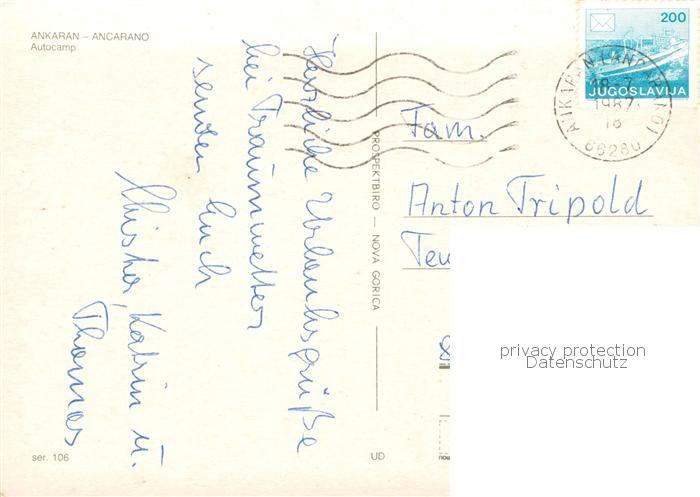 ANKARAN – ANCARANO
Autocamp
Herzliche Urlaubsgrüße
bei Traumwetter
senden Euch
Christa, Katrin u.
Thomas
PROSPEKTBIRO — NOVA GORICA
200
JUGOSLAVIJA
1987
18
66280
Fam.
Anton Tripold
privacy protection
Datenschutz
ser. 106
UD